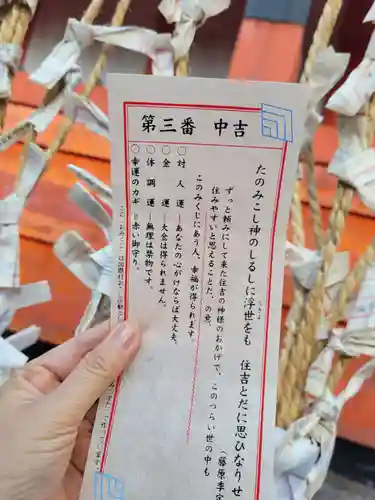 第三番　中吉
たのみこし神のしるしに浮世をも　住吉とだに思ひなりせ
うきよ
（藤原季定
ずっと頼みにして来た住吉の神様のおかげで、このつらい世の中も
住みやすいと思えることだ、の意。
このみくじにあう人、幸福が得られます。
○対人運―あなたの心がけならば大丈夫。
○金運―大金は得られません。
○体調運―無理は禁物です。
○幸運のカギ―赤い御守り。